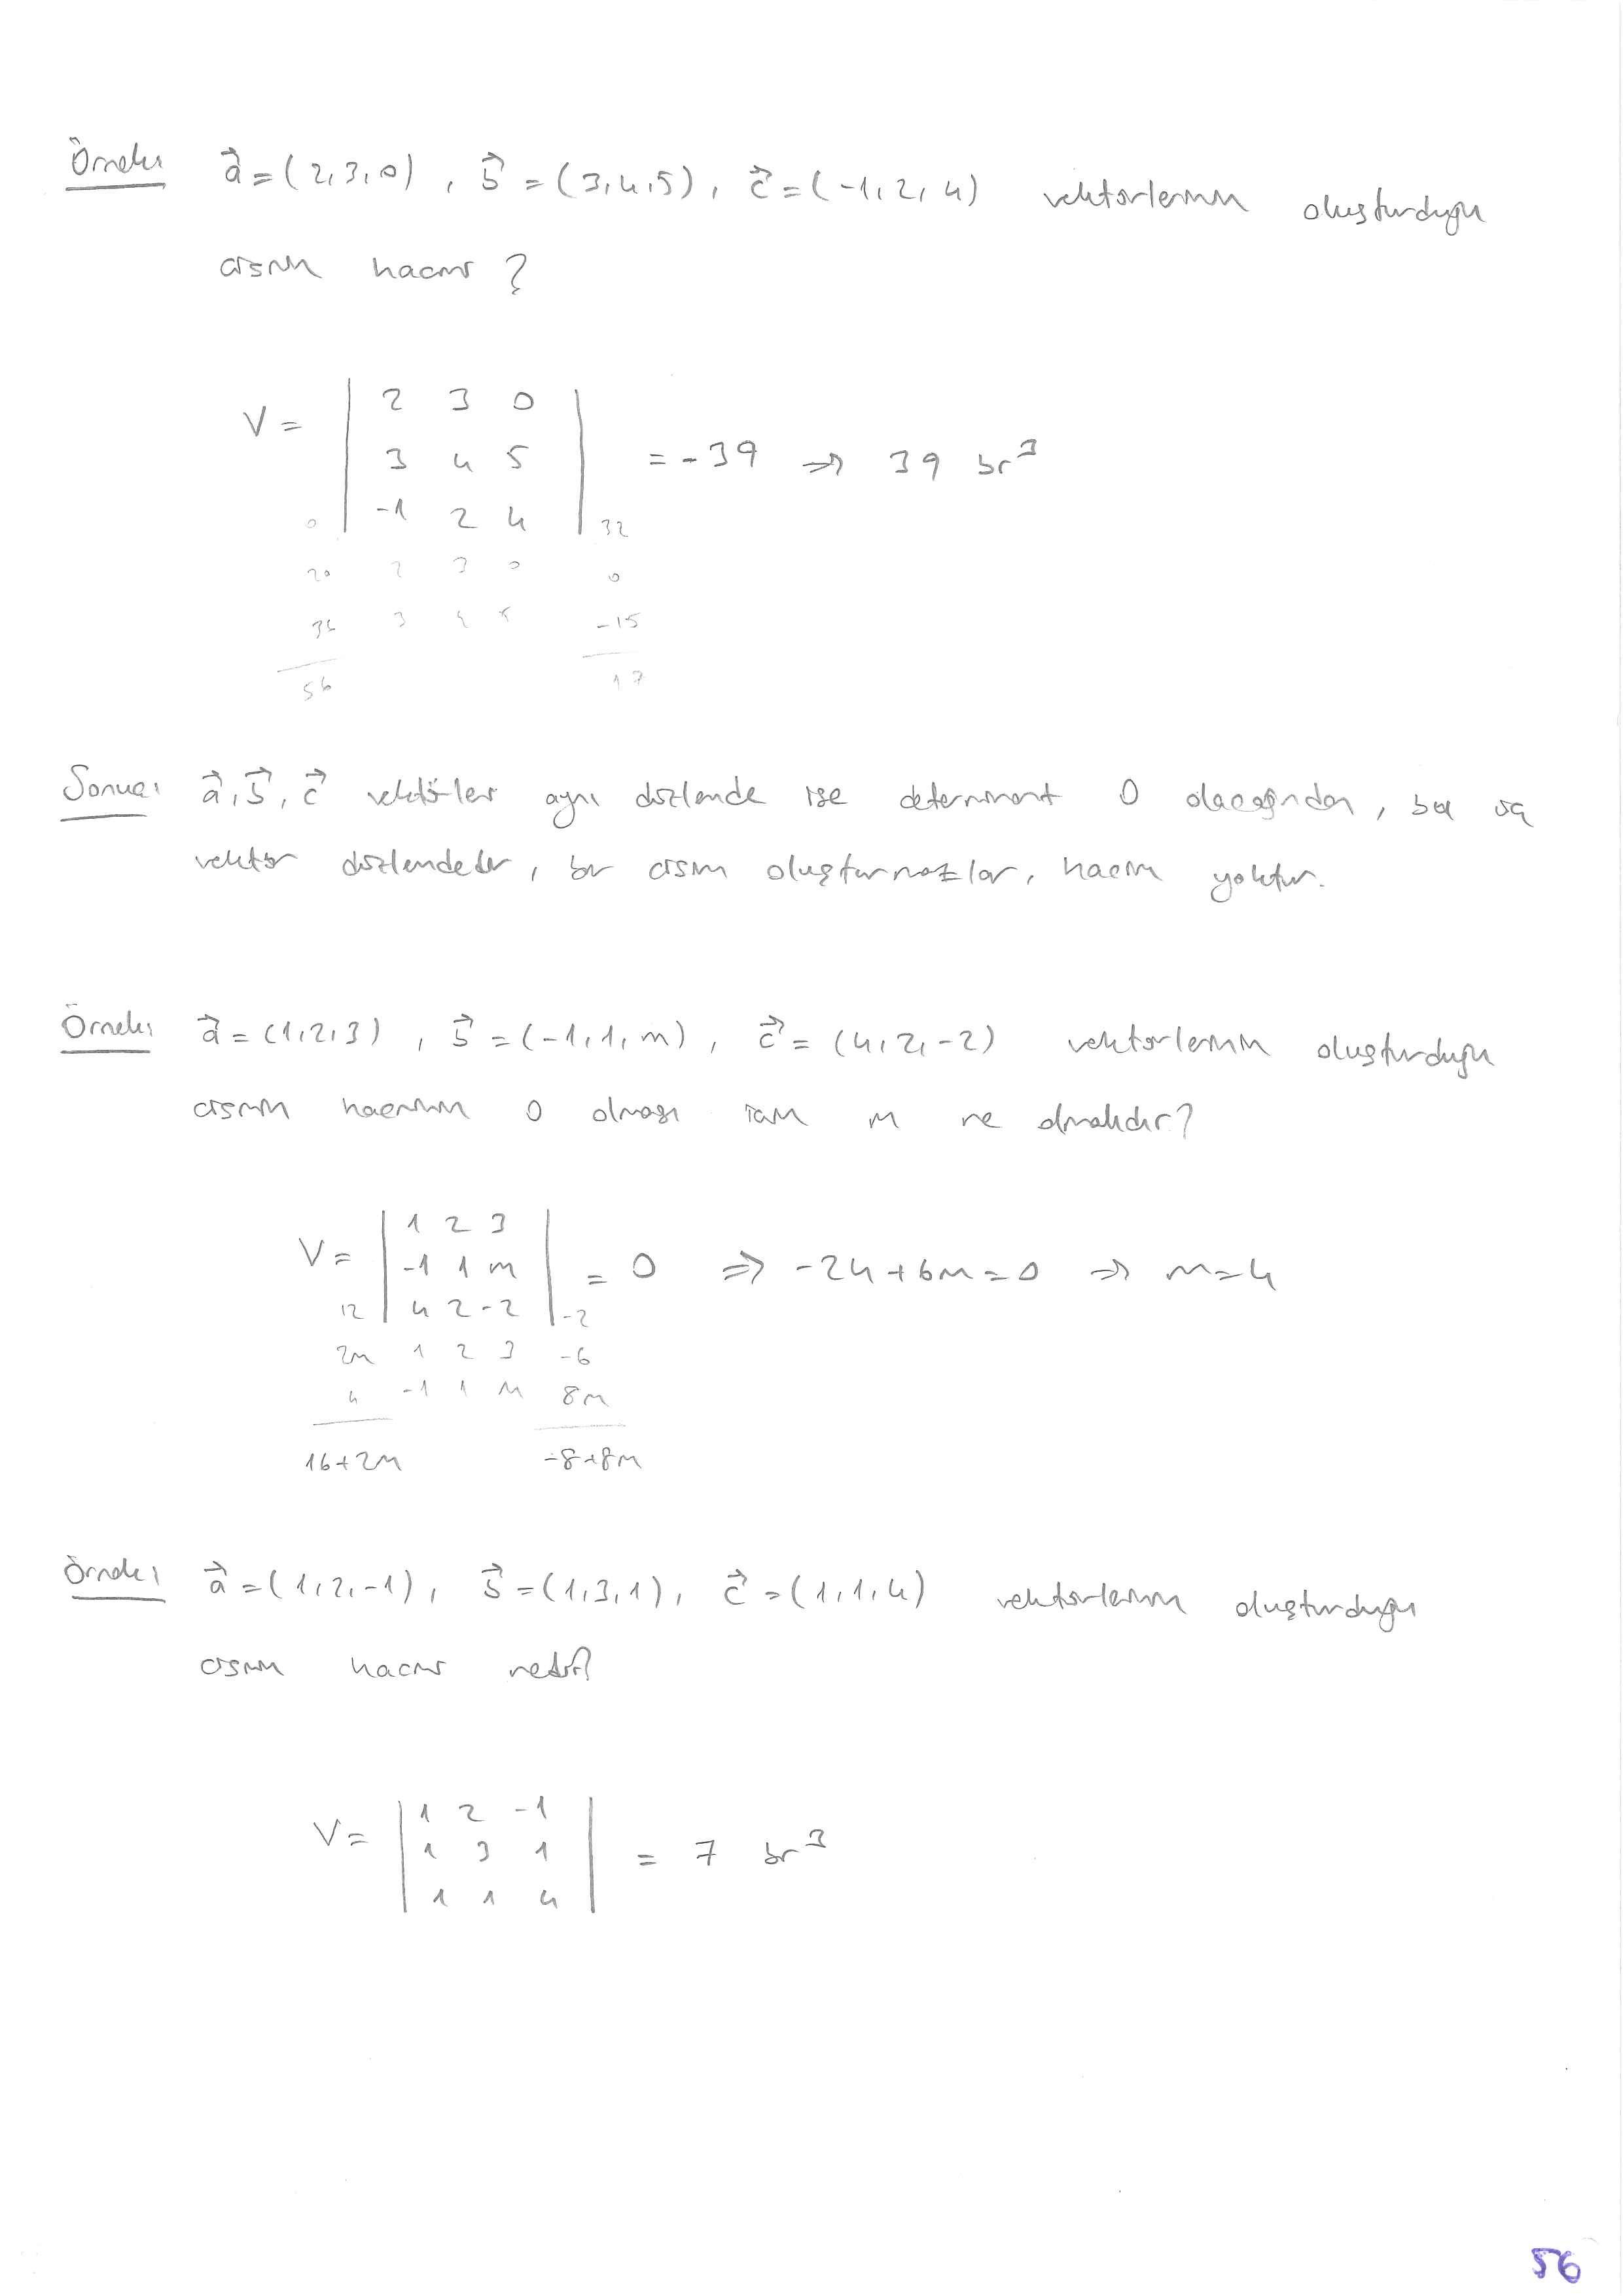 Örnek: a⃗ = (2,3,0) , b⃗ = (3,4,5) , c⃗ = (-1,2,4) vektörlerinin oluşturduğu
cismin hacmi ?
V = | 2 3 0 |
| 3 4 5 | = -39 ⇒ 39 br³
0 | -1 2 4 | 32
20 2 3 0 0
36 3 4 5 -15
56 17
Sonuç: a⃗, b⃗, c⃗ vektörler aynı düzlemde ise determinant 0 olacağından, bu üç
vektör düzlemdedir, bir cisim oluşturmazlar, hacim yoktur.
Örnek: a⃗ = (1,2,3) , b⃗ = (-1,1,m) , c⃗ = (4,2,-2) vektörlerinin oluşturduğu
cismin hacminin 0 olması için m ne olmalıdır?
V = | 1 2 3 |
| -1 1 m | = 0 ⇒ -24+6m=0 ⇒ m=4
12 | 4 2 -2 | -2
2m 1 2 3 -6
4 -1 1 m 8m
16+2m -8+8m
Örnek: a⃗ = (1,2,-1) , b⃗ = (1,3,1) , c⃗ = (1,1,4) vektörlerinin oluşturduğu
cismin hacmi nedir?
V = | 1 2 -1 |
| 1 3 1 | = 7 br³
| 1 1 4 |
56